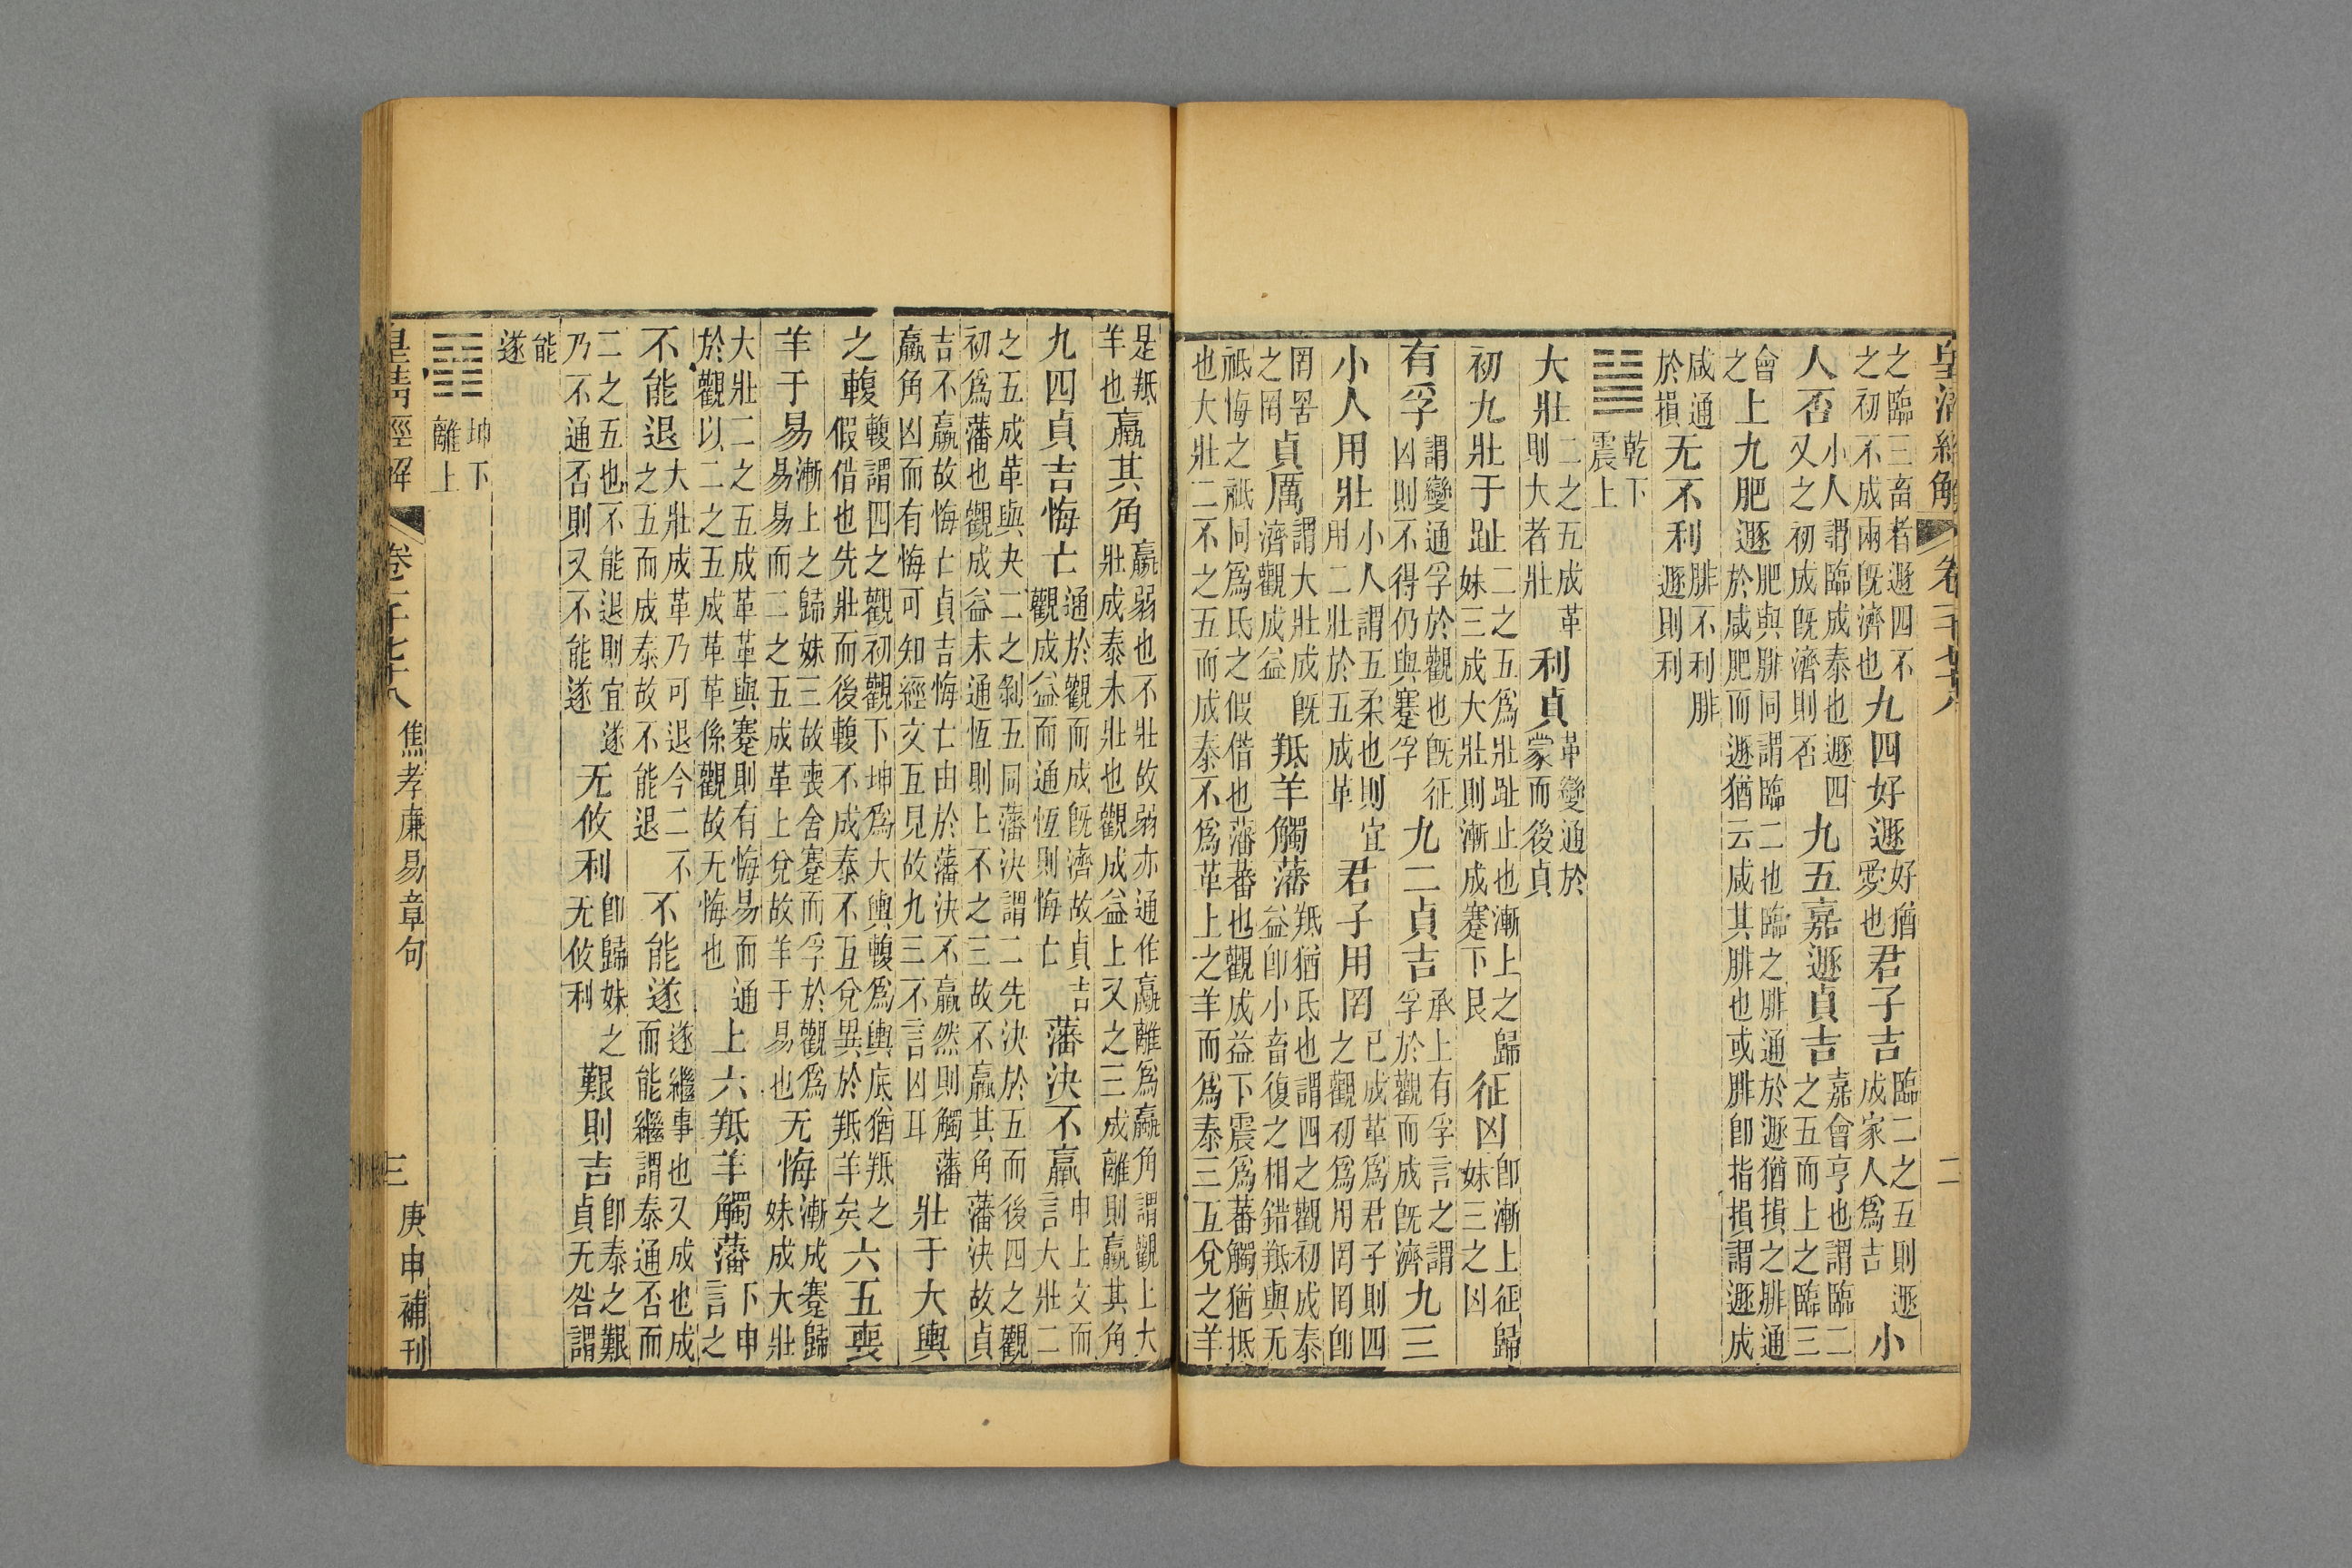 皇清經解 卷一千七十八 二
之臨三畜者遯四不之初不成兩旣濟也九四好遯好猶愛也君子吉臨二之五則遯成家人爲吉小
人否小人謂臨成泰也遯四又之初成旣濟則否九五嘉遯貞吉嘉會亨也謂臨二之五而上之臨三
會上九肥遯肥與腓同謂臨二也臨之腓通於遯猶損之腓通之於咸肥而遯猶云咸其腓也或腓卽指損謂遯成
咸通於損无不利腓不利腓遯則利
䷡乾下震上
大壯二之五成革則大者壯利貞革變通於蒙而後貞
初九壯于趾二之五爲壯趾止也漸上之歸妹三成大壯則漸成蹇下艮征凶卽漸上征歸妹三之凶
有孚謂變通孚於觀也旣征凶則不得仍與蹇孚九二貞吉承上有孚言之謂孚於觀而成旣濟九三
小人用壯小人謂五柔也則宜用二壯於五成革君子用罔已成革爲君子則四之觀初爲用罔罔卽
罔罟之罔貞厲謂大壯成旣濟觀成益羝羊觸藩羝猶氐也謂四之觀初成泰益卽小畜復之相錯羝與无
祗悔之祗同爲氐之假借也藩蕃也觀成益下震爲蕃觸猶抵也大壯二不之五而成泰不爲革上之羊而爲泰三互兌之羊
是羝羊也羸其角羸弱也不壯故弱亦通作羸離爲羸角謂觀上大壯成泰未壯也觀成益上又之三成離則羸其角
九四貞吉悔亡通於觀而成旣濟故貞吉觀成益而通恆則悔亡藩決不羸申上文而言大壯二
之五成革與夬二之剝五同藩決謂二先決於五而後四之觀初爲藩也觀成益未通恆則上不之三故不羸其角藩決故貞
吉不羸故悔亡貞吉悔亡由於藩決不羸然則觸藩羸角凶而有悔可知經文互見故九三不言凶耳壯于大輿
之輹輹謂四之觀初觀下坤爲大輿輹爲輿底猶羝之假借也先壯而後輹不成泰不互兌異於羝羊矣六五喪
羊于易漸上之歸妹三故喪舍蹇而孚於觀爲易易而二之五成革上兌故羊于易也无悔漸成蹇歸妹成大壯
大壯二之五成革革與蹇則有悔易而通於觀以二之五成革革係觀故无悔也上六羝羊觸藩下申言之
不能退大壯成革乃可退今二不之五而成泰故不能退不能遂遂繼事也又成也成而能繼謂泰通否而
二之五也不能退則宜遂乃不通否則又不能遂无攸利卽歸妹之无攸利艱則吉卽泰之艱貞无咎謂
能遂
䷢坤下離上
皇淸經解 卷一千七十八 焦孝廉易章句 三 庚申補刊